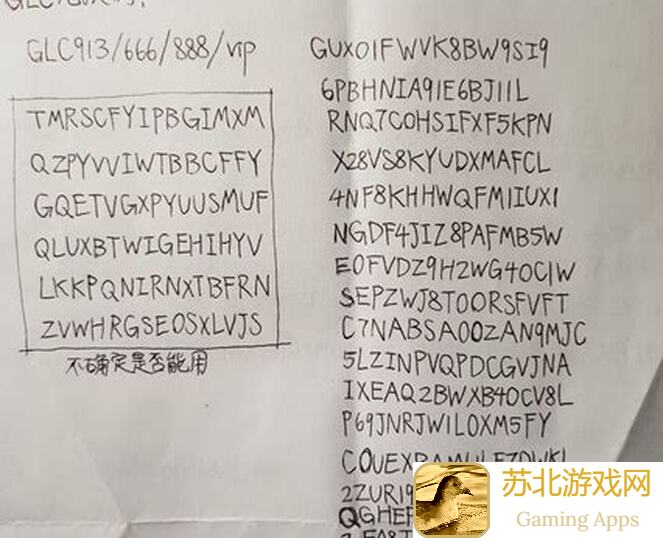 GLC913/666/888/vip
TMRSCFYIPBGIMXM
QZPYVVIWTBBCFFY
GQETVGXPYUUSMUF
QLUXBTWIGEHIHYV
LKKPQNIRNXTBFRN
ZVWHRGSEOSXLVJS
不确定是否能用
GUX01FWVK8BW9SI9
6PBHNIA91E6BJ11L
RNQ7COHSIFXF5KPN
X28VS8KYUDXMAFCL
4NF8KHHWQFM1IUX1
NGDF4JIZ8PAFMB5W
EOFVDZ9H2WG4OC1W
SEPZWJ8TOORSFVFT
C7NABSAOOZAN9MJC
5LZINPVQPDCGVJNA
IXEAQ2BWXB4OCV8L
P69JNRJWILOXM5FY
2ZURI9
QGHEF
苏北游戏网
Gaming Apps